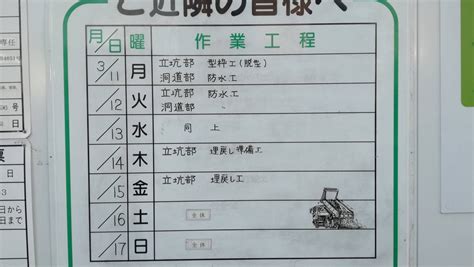 ご近隣の皆様へ
月/日 曜 作業工程
3/11 月 立坑部 型枠工(脱型)
洞道部 防水工
/12 火 立坑部 防水工
洞道部 〃
/13 水 同上
/14 木 立坑部 埋戻し準備工
/15 金 立坑部 埋戻し工
/16 土 全休
/17 日 全休
専任
票
日から
日まで